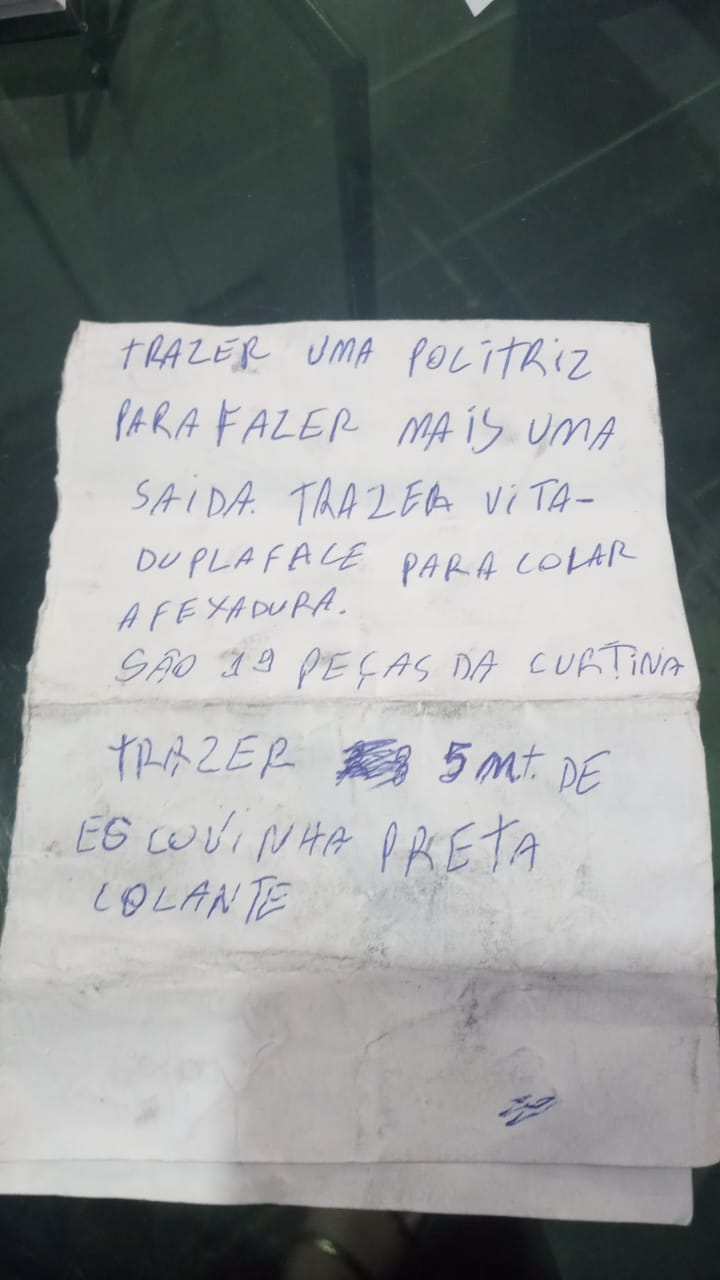 TRAZER UMA POLITRIZ
PARA FAZER MAIS UMA
SAIDA. TRAZER VITA-
DUPLAFACE PARA COLAR
A FEXADURA.
SÃO 19 PEÇAS DA CURTINA
TRAZER 5 mt. DE
ESCOVINHA PRETA
COLANTE